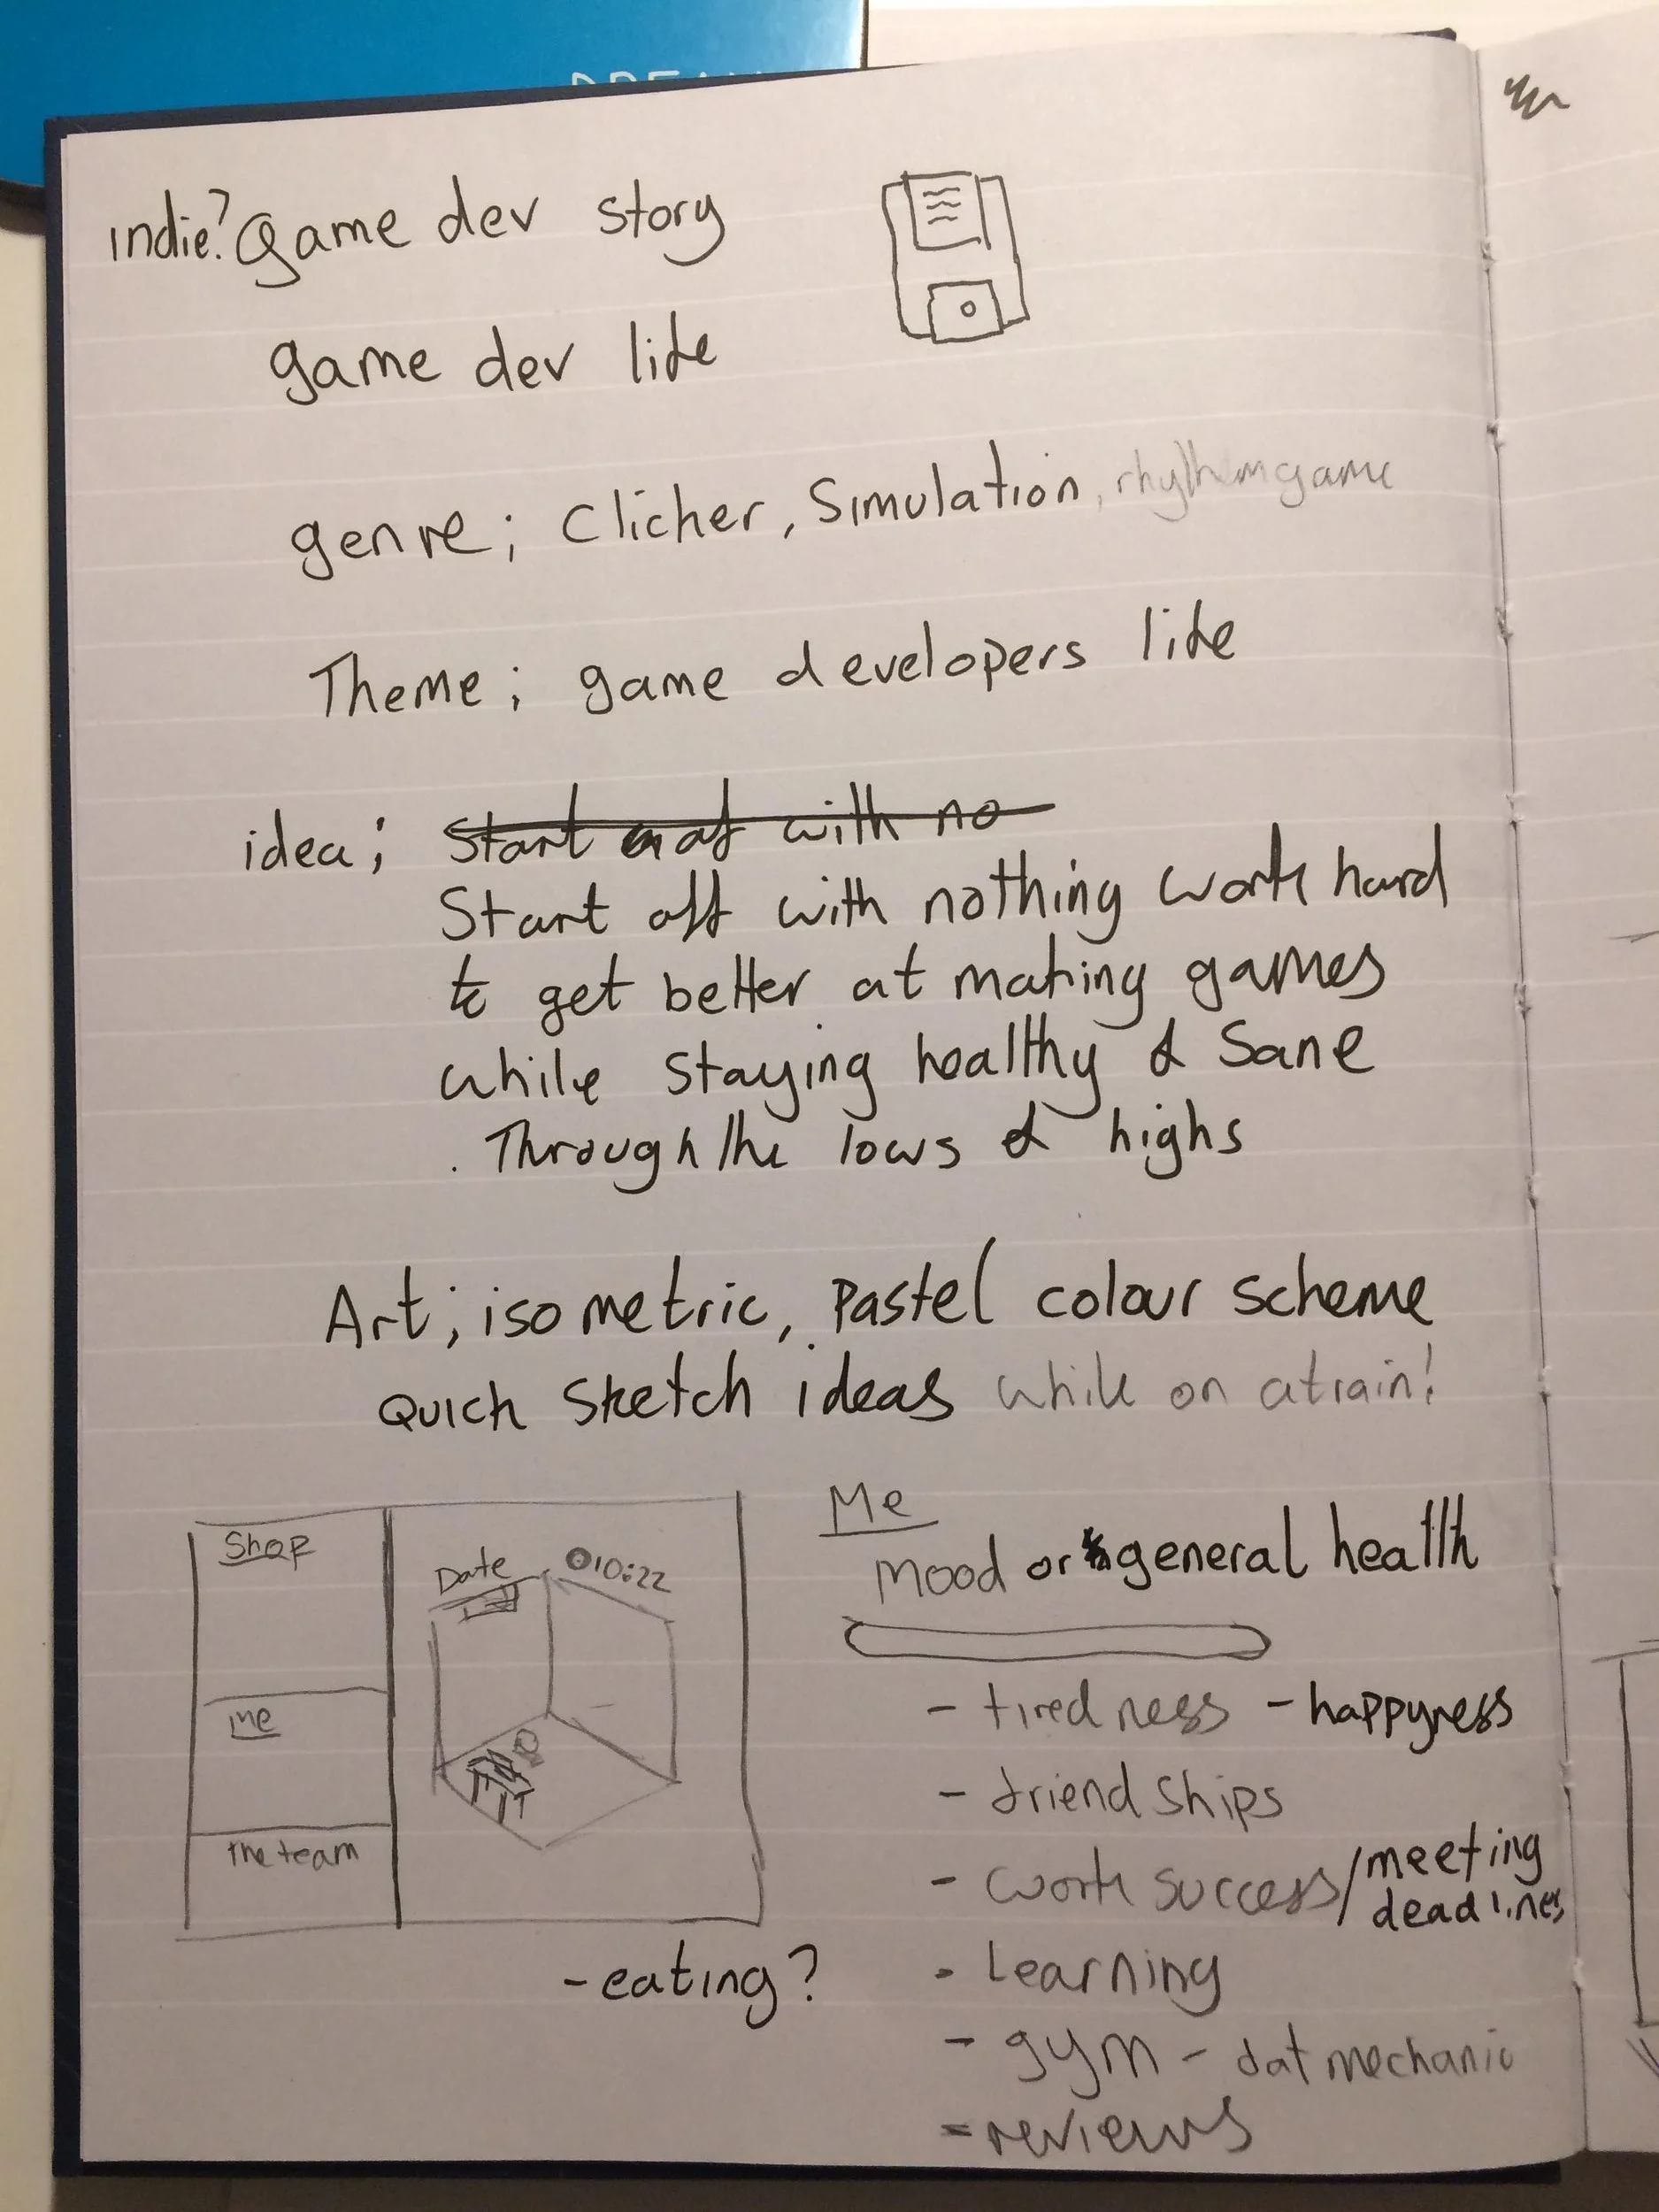 indie? game dev story
game dev life
genre; Clicker, Simulation, rhythm game
Theme; game developers life
idea; Start of with no
Start off with nothing work hard
to get better at making games
while staying healthy & Sane
. Through the lows & highs
Art; isometric, Pastel colour scheme
Quick Sketch ideas while on a train!
Shop
Date 10:22
me
the team
Me
Mood or general health
- tiredness - happyness
- friendships
- work success/meeting deadlines
- Learning
- eating?
- gym - fat mechanic
- reviews